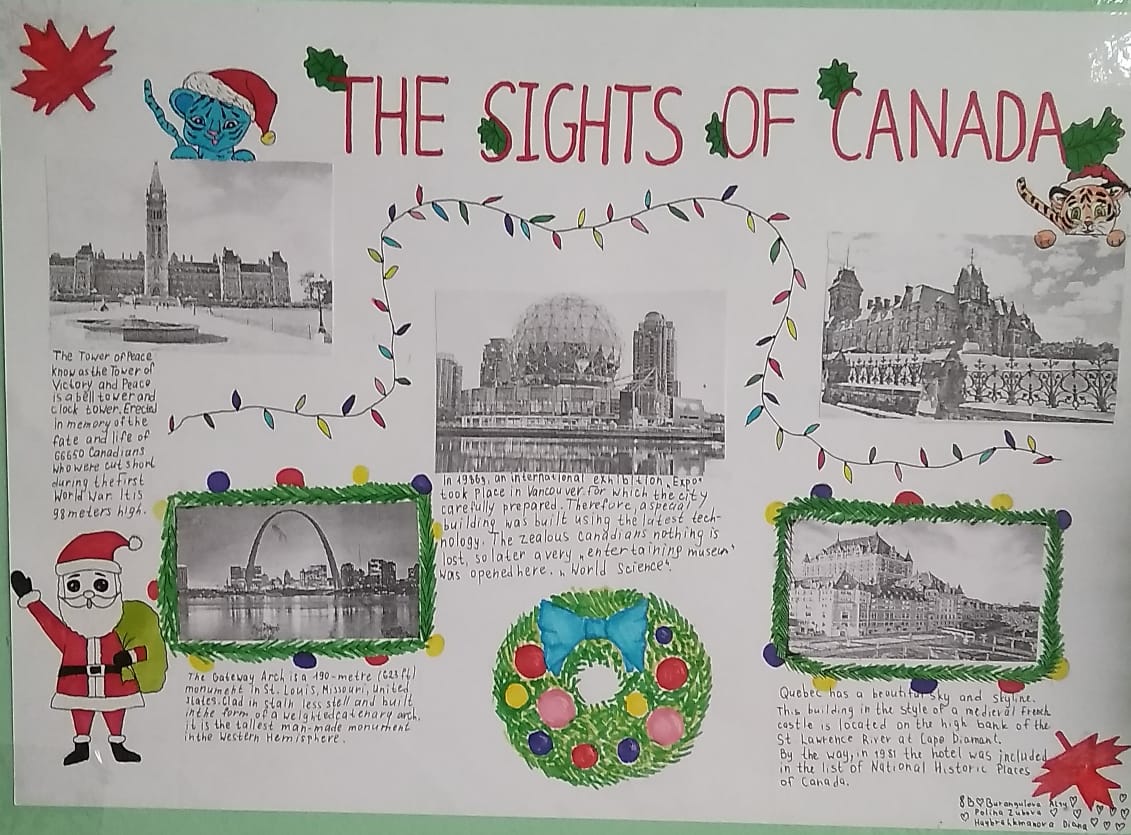 THE SIGHTS OF CANADA
The Tower of Peace
know as the Tower of
Victory and Peace
is a bell tower and
clock tower. Erected
in memory of the
fate and life of
66650 Canadians
who were cut short
during the first
World War. It is
98 meters high.
In 1986g. an international exhibition „Expo"
took place in Vancouver for which the city
carefully prepared. Therefore, a special
building was built using the latest tech-
nology. The zealous canadians nothing is
lost, so later a very „entertaining museum"
was opened here. „World Science".
The Gateway Arch is a 190-metre (623 ft)
monument in St. Louis, Missouri, United
States. Clad in stain less stell and built
in the form of a weighted catenary arch.
it is the tallest man-made monument
in the Western Hemisphere.
Quebec has a beautiful sky and skyline.
This building in the style of a medieval French
castle is located on the high bank of the
St Lawrence River at Cape Diamant.
By the way, in 1981 the hotel was included
in the list of National Historic Places
of Canada.
8b Burangulova
Polina Zubova
Diana